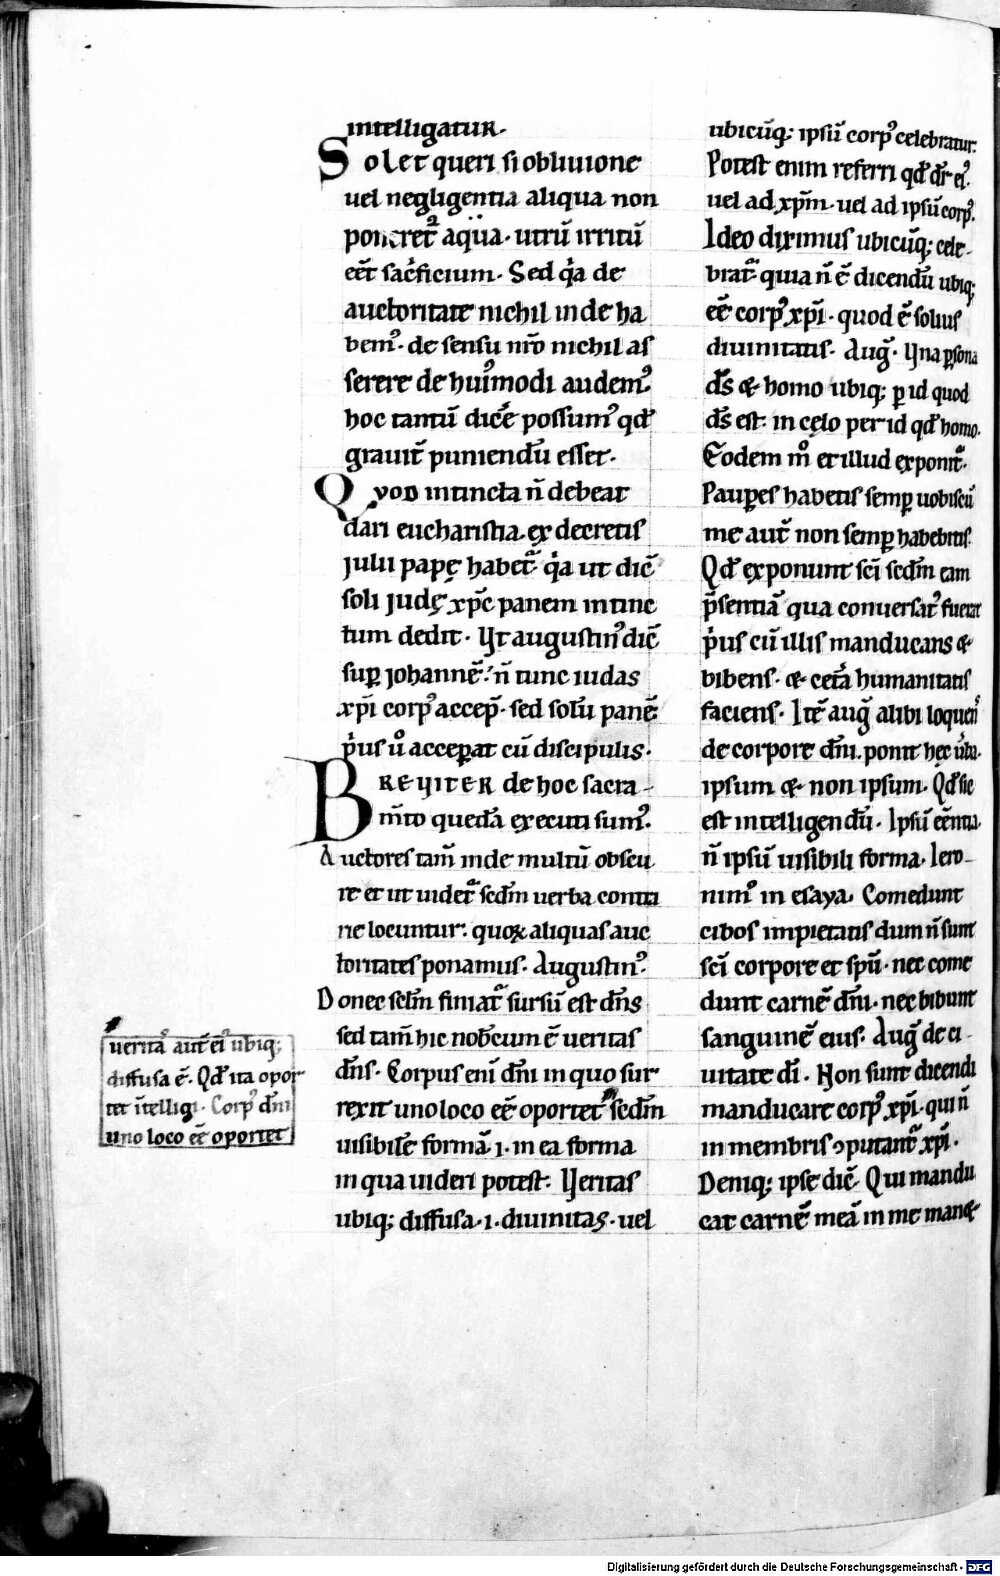 intelligatur.
Solet queri si obliuione
uel negligentia aliqua non
poneret᷑ aqua. utrū irritū
eēt sac̍ficium. Sed q̍a de
auctoritate nichil inde ha
bemꝰ. de sensu nr̄o nichil as
serere de huiꝰmodi audemꝰ.
hoc tantū dic̄e possumꝰ qđ
grauit̄ puniendū esset.
Qvod intincta n̄ debeat
dari eucharistia ex decretis
julii papę habet᷑. q̍a ut dic̄
soli judę xp̄c panem intinc
tum dedit. Vt augustinꝰ dic̄
suꝑ johannē. n̄ tunc iudas
xp̄i corpꝰ accep̄. sed solū panē.
p̍us ů acceꝑat cū discipulis.
BREVITER de hoc sacra-
m̄to quedā executi sumꝰ.
Auctores tam̄ inde multū obscu
re et ut uidet᷑ scđm uerba contra
rie locuntur. quoꝝ aliquas auc
toritates ponamus. Augustinꝰ.
Donec scl̄m finiat᷑ sursū est dn̄s
sed tam̄ hic nob̄cum ē ueritas
dn̄s. Corpus eni dn̄i in quo sur
rexit uno loco eē oportet scđm
uisibilē formā .i. in ea forma
in qua uideri potest. Veritas
ubiq; diffusa .i. diuinitas. uel
ueritaꝰ aut̄ eiꝰ ubiq;
diffusa ē. Qđ ita opor
tet ītelligi. Corpꝰ dn̄i
uno loco eē oportet
ubicūq; ipsū corpꝰ celebratur.
Potest enim referri qđ dr̄ eiꝰ.
uel ad xp̄m. uel ad ipsū corpꝰ.
Ideo diximus ubicūq; cele-
brat᷑. quia n̄ ē dicendū ubiq;
eē corpꝰ xp̄i. quod ē solius
diuinitatis. Auḡ. Vna ꝑsona
dš & homo ubiq; ꝑ id quod
dš est. in cęlo per id qđ homo.
Eodem m̊ et illud exponit᷑.
Pauꝑes habetis semꝑ uobiscū
me aut̄ non semꝑ habebitis.
Qđ exponunt sc̄i scđm eam
p̄sentiā qua conuersatꝰ fuerat
p̍us cū illis manducans &
bibens. & cet̍a humanitatis
faciens. Itē auḡ alibi loquens
de corpore dn̄i. ponit hęc u̍ba.
ipsum & non ipsum. Qđ sic
est intelligendū. Ipsū eēntia
n̄ ipsū uisibili forma. Iero-
nimꝰ in esaya. Comedunt
cibos impietatis dum n̄ sunt
sc̄i corpore et spū. nec come
dunt carnē dn̄i. nec bibunt
sanguinē eius. Auḡ de ci-
uitate dī. Non sunt dicendi
manducare corpꝰ xp̄i. qui n̄
in membris ꝯputant᷑ xp̄i.
Deniq; ipse dic̄. Qui mandu
cat carnē meā in me man&
Digitalisierung gefördert durch die Deutsche Forschungsgemeinschaft - DFG